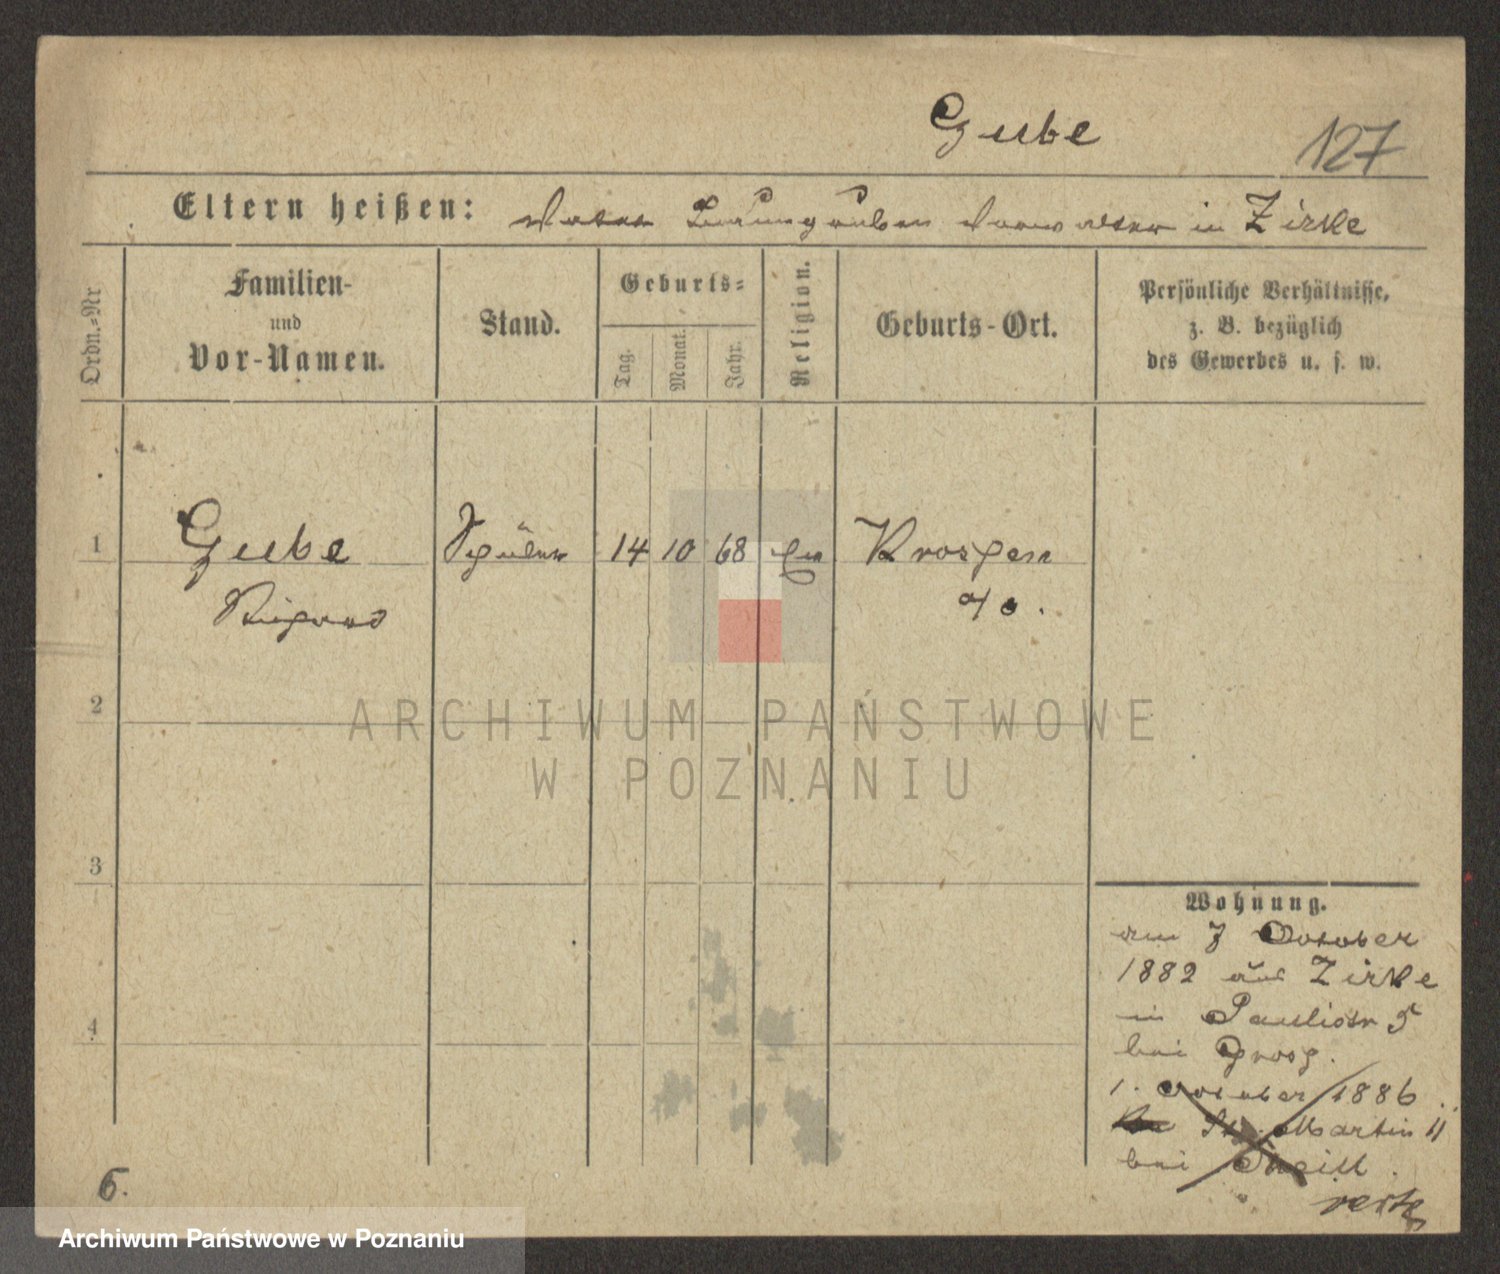 Gube 127
Eltern heißen: Vater in Zirke
Ordn.=Nr
Familien-
und
Vor-Namen.
Stand.
Geburts=
Tag. Monat. Jahr.
Religion.
Geburts-Ort.
Persönliche Verhältnisse,
z. B. bezüglich
des Gewerbes u. s. w.
1 Gube Schüler 14 10 68 Krossen
Richard a/o.
2
3
4
Wohnung.
am 7 October
1882 aus Zirke
in Paulistr 5
bei
1. October 1886
St. Martin 11
bei
verte
6.
ARCHIWUM PAŃSTWOWE
W POZNANIU
Archiwum Państwowe w Poznaniu